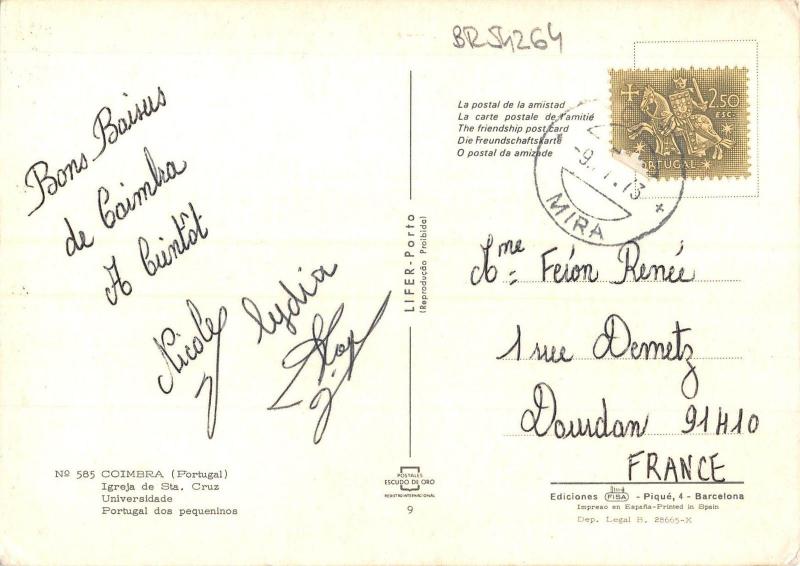 BR54264
Bons Baisers
de Coimbra
A bientôt
Nicole
Lydia
La postal de la amistad
La carte postale de l'amitié
The friendship post card
Die Freundschaftskarte
O postal da amizade
2$50
ESC.
PORTUGAL
-9. 7. 73
MIRA
Mme Feïon Renée
1 rue Demetz
Dourdan 91410
FRANCE
LIFER-Porto
(Reprodução Proibida)
Nº 585 COIMBRA (Portugal)
Igreja de Sta. Cruz
Universidade
Portugal dos pequeninos
POSTALES
ESCUDO DE ORO
REGISTRO INTERNACIONAL
9
Ediciones FISA - Piqué, 4 - Barcelona
Impreso en España-Printed in Spain
Dep. Legal B. 28665-X